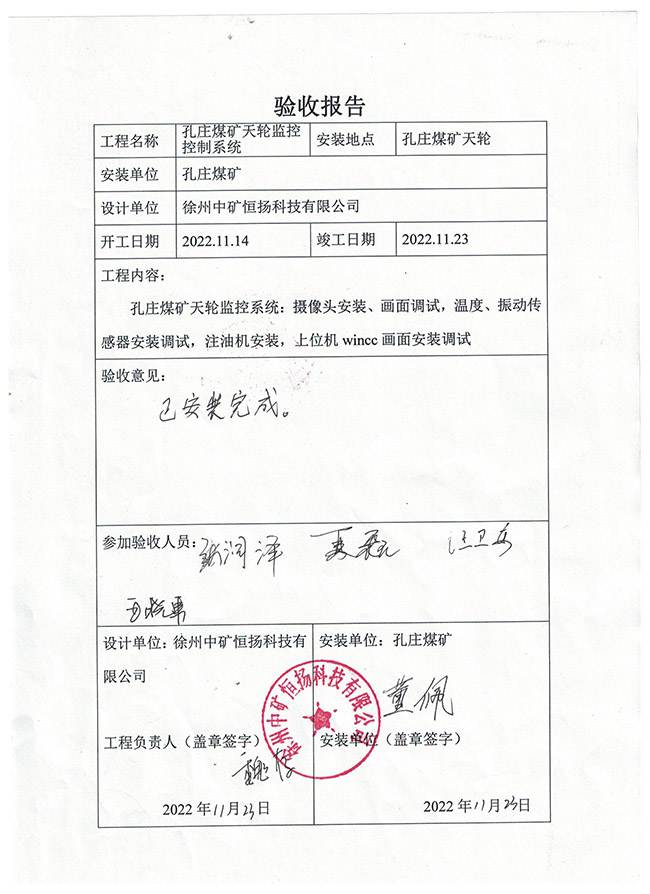 验收报告
工程名称 孔庄煤矿天轮监控控制系统 安装地点 孔庄煤矿天轮
安装单位 孔庄煤矿
设计单位 徐州中矿恒扬科技有限公司
开工日期 2022.11.14 竣工日期 2022.11.23
工程内容：
孔庄煤矿天轮监控系统：摄像头安装、画面调试，温度、振动传
感器安装调试，注油机安装，上位机 wincc 画面安装调试
验收意见：
已安装完成。
参加验收人员：
设计单位：徐州中矿恒扬科技有
限公司
安装单位：孔庄煤矿
徐州中矿恒扬科技有限公司
董佩
工程负责人（盖章签字）
安装单位（盖章签字）
2022年11月23日
2022年11月23日